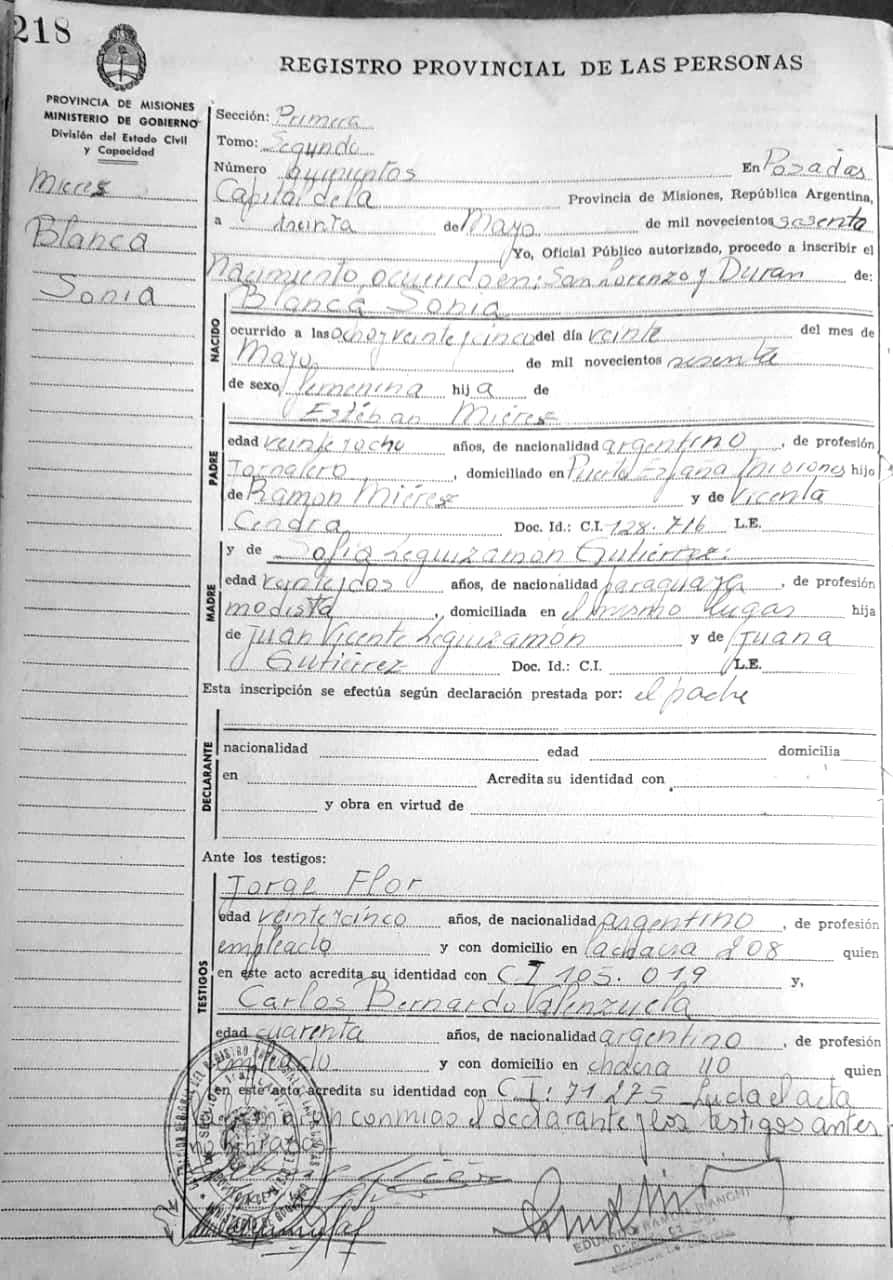 218
REGISTRO PROVINCIAL DE LAS PERSONAS
PROVINCIA DE MISIONES
MINISTERIO DE GOBIERNO
División del Estado Civil
y Capacidad
Mieres
Blanca
Sonia
Sección: Primera
Tomo: Segundo
Número quinientos En Posadas
Capital de la Provincia de Misiones, República Argentina,
a treinta de Mayo de mil novecientos sesenta
Yo, Oficial Público autorizado, procedo a inscribir el
Nacimiento, ocurrido en: San Lorenzo y Duran de:
NACIDO
Blanca Sonia
ocurrido a las ocho y veinte y cinco del día veinte del mes de
Mayo de mil novecientos sesenta
de sexo femenina hija de
PADRE
Estéban Mieres
edad veinte y ocho años, de nacionalidad argentino, de profesión
Jornalero, domiciliado en Puerto España Misiones hijo
de Ramón Miéres y de Vicenta
Cendra Doc. Id.: C.I. 128.716 L.E.
MADRE
y de Sofia Leguizamón Gutiérrez:
edad veinte y dos años, de nacionalidad paraguaya, de profesión
modista, domiciliada en el mismo lugar hija
de Juan Vicente Leguizamón y de Juana
Gutiérrez Doc. Id.: C.I. L.E.
Esta inscripción se efectúa según declaración prestada por: el padre
DECLARANTE
nacionalidad edad domicilia
en Acredita su identidad con
y obra en virtud de
Ante los testigos:
TESTIGOS
Jorge Flor
edad veinte y cinco años, de nacionalidad argentino, de profesión
empleado y con domicilio en la chacra 208 quien
en este acto acredita su identidad con C I 105.019 y,
Carlos Bernardo Valenzuela
edad cuarenta años, de nacionalidad argentino, de profesión
empleado y con domicilio en chacra 40 quien
en este acto acredita su identidad con C.I: 71275 Leída el acta
conmigo el declarante y los testigos antes